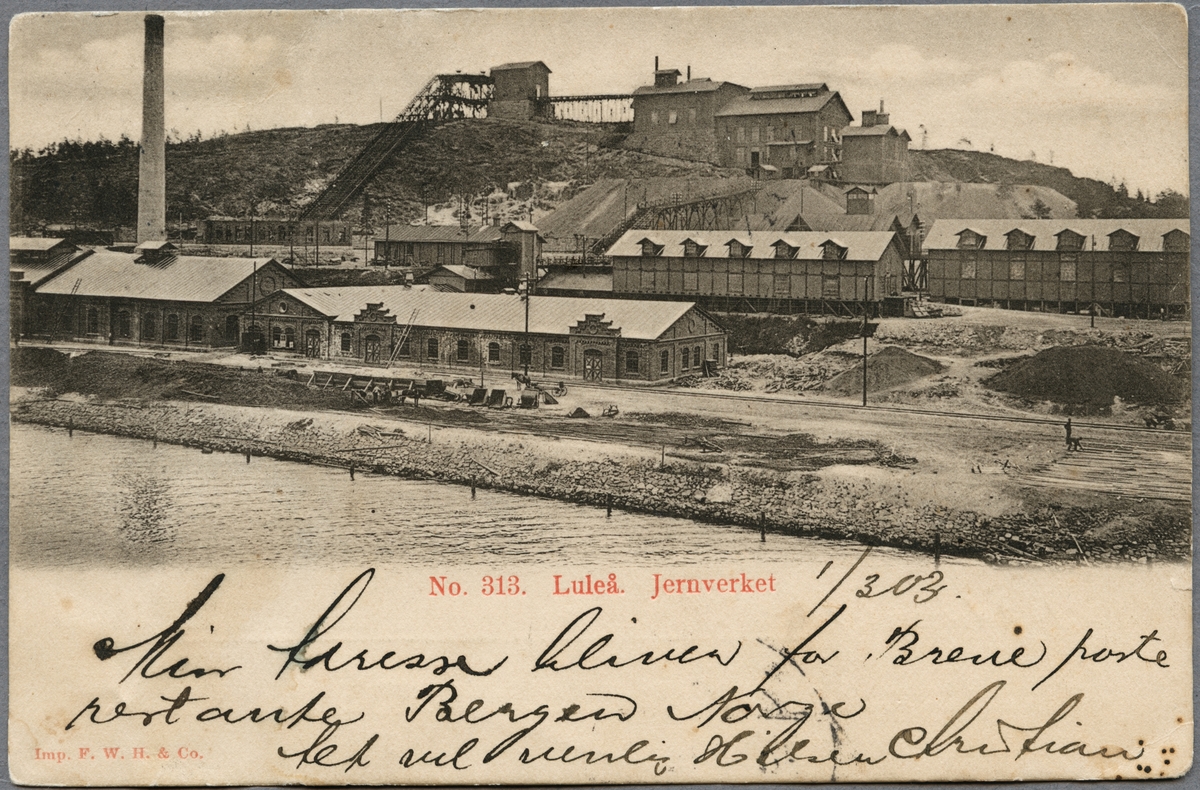 No. 313. Luleå. Jernverket
1/3 03.
Min Adresse bliver for Breve poste
restante Bergen Norge
Lev vel venlig Hilsen Christian
Imp. F. W. H. & Co.